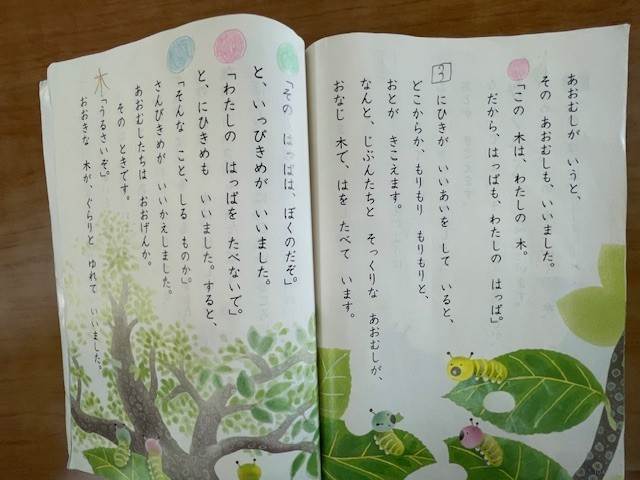 あおむしが いうと、
その あおむしも、いいました。
「この 木は、わたしの 木。
だから、はっぱも、わたしの はっぱ。」
3
にひきが いいあいを して いると、
どこからか、もりもり もりもりと、
おとが きこえます。
なんと、じぶんたちと そっくりな あおむしが、
おなじ 木で、はを たべて います。
「その はっぱは、ぼくのだぞ。」
と、いっぴきめが いいました。
「わたしの はっぱを たべないで。」
と、にひきめも いいました。すると、
「そんな こと、しる ものか。」
さんびきめが いいかえしました。
あおむしたちは おおげんか。
その ときです。
木
「うるさいぞ。」
おおきな 木が、ぐらりと ゆれて いいました。